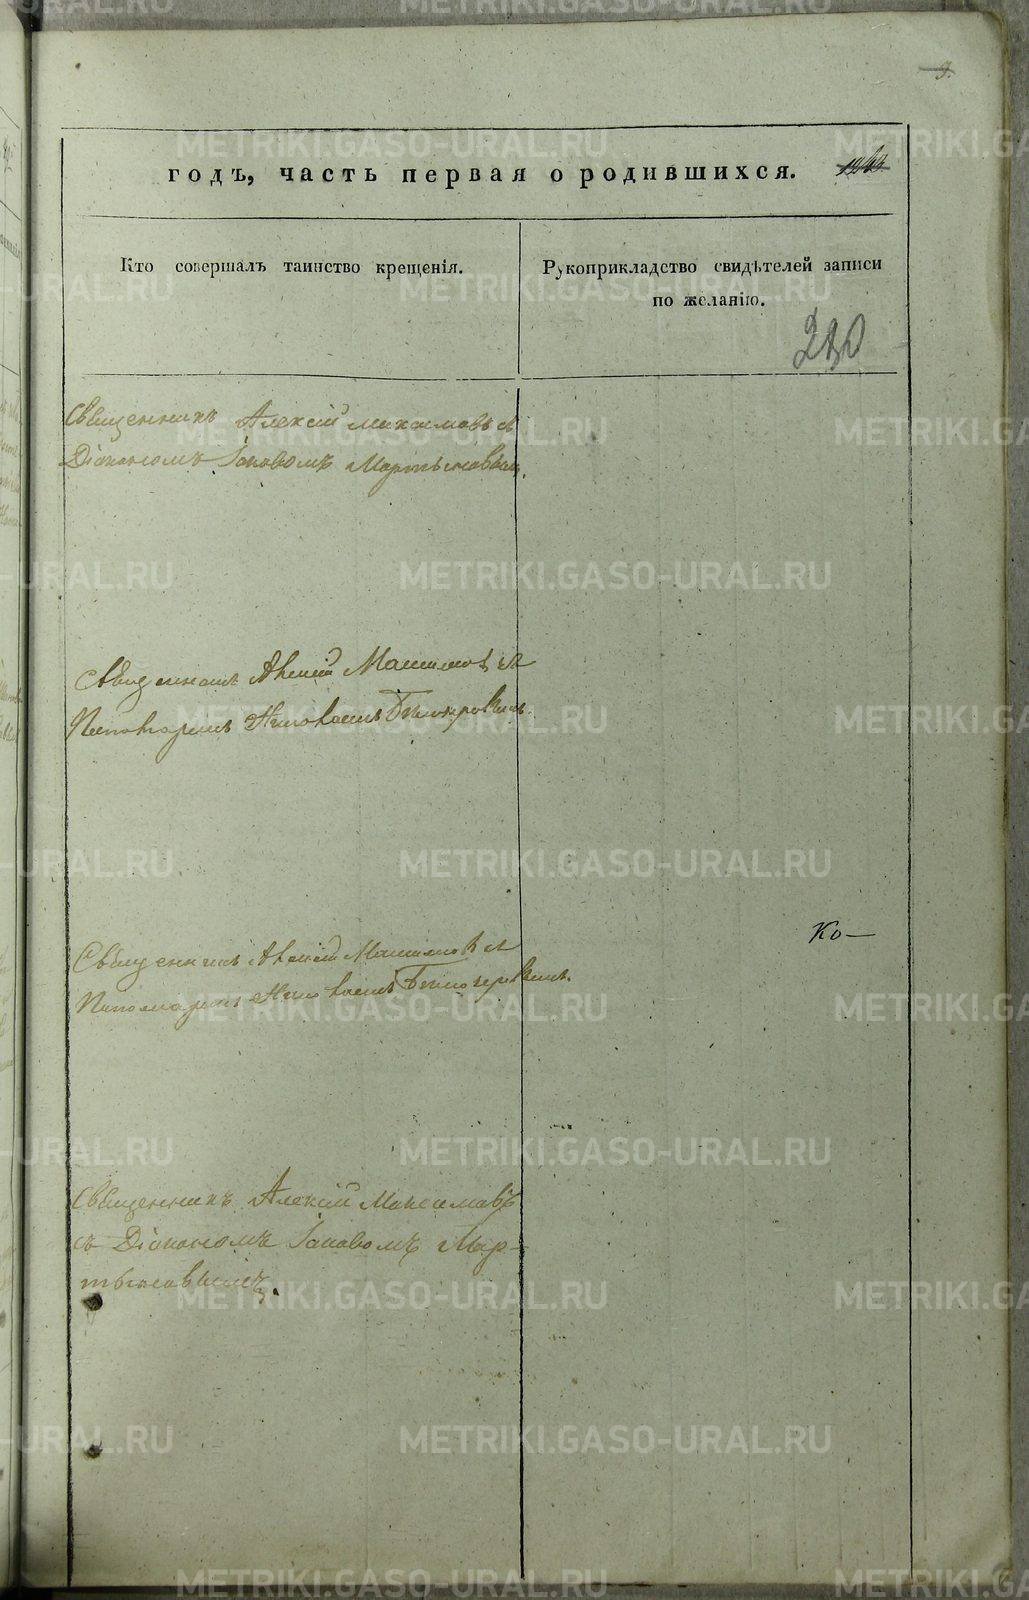 3.
годъ, часть первая о родившихся.
Кто совершалъ таинство крещенія.
Рукоприкладство свидѣтелей записи
по желанію.
230
Священникъ Алексій Максимовъ съ
Діакономъ Іаковомъ Мартыновымъ.
Священникъ Алексій Максимовъ съ
Пономаремъ Николаемъ
Ко—
Священникъ Алексій Максимовъ съ
Пономаремъ Николаемъ
Священникъ Алексій Максимовъ
съ Діакономъ Іаковомъ Мар-
тыновымъ.
METRIKI.GASO-URAL.RU